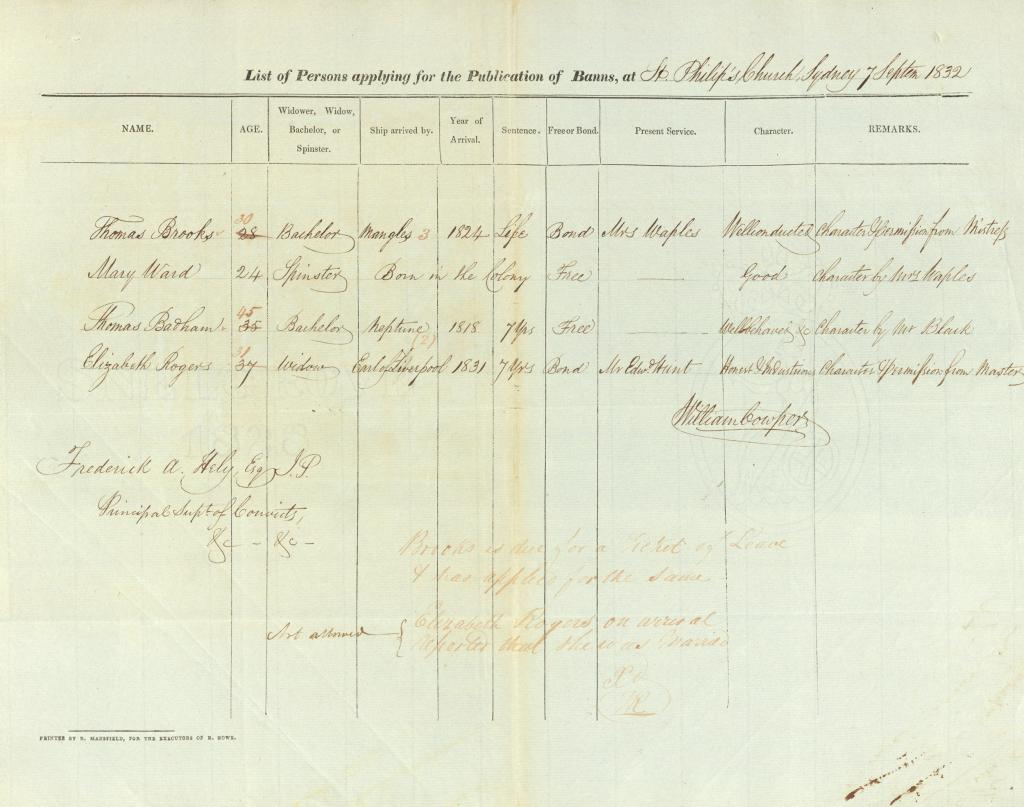 List of Persons applying for the Publication of Banns, at St. Philip's Church, Sydney 7 Septem 1832
NAME. AGE. Widower, Widow, Bachelor, or Spinster. Ship arrived by. Year of Arrival. Sentence. Free or Bond. Present Service. Character. REMARKS.
Thomas Brooks 30 28 Bachelor Mangles 3 1824 Life Bond Mrs Waples Wellconducted Character & Permission from Mistress
Mary Ward 24 Spinster Born in the Colony Free Good Character by Mrs Waples
Thomas Badham 45 35 Bachelor Neptune (2) 1818 7 Yrs Free Well behaved &c Character by Mr Black
Elizabeth Rogers 31 37 Widow Earl of Liverpool 1831 7 Yrs Bond Mr Edwd. Hunt Honest & Industrious Character & Permission from Master
William Cowper
Frederick A. Hely, Esq J.P.
Principal Supt. of Convicts,
&c - &c -
Brooks is due for a Ticket of Leave
& has applied for the same
Not allowed { Elizabeth Rogers on arrival
reported that she was Married
PRINTED BY R. MANSFIELD, FOR THE EXECUTORS OF R. HOWE.